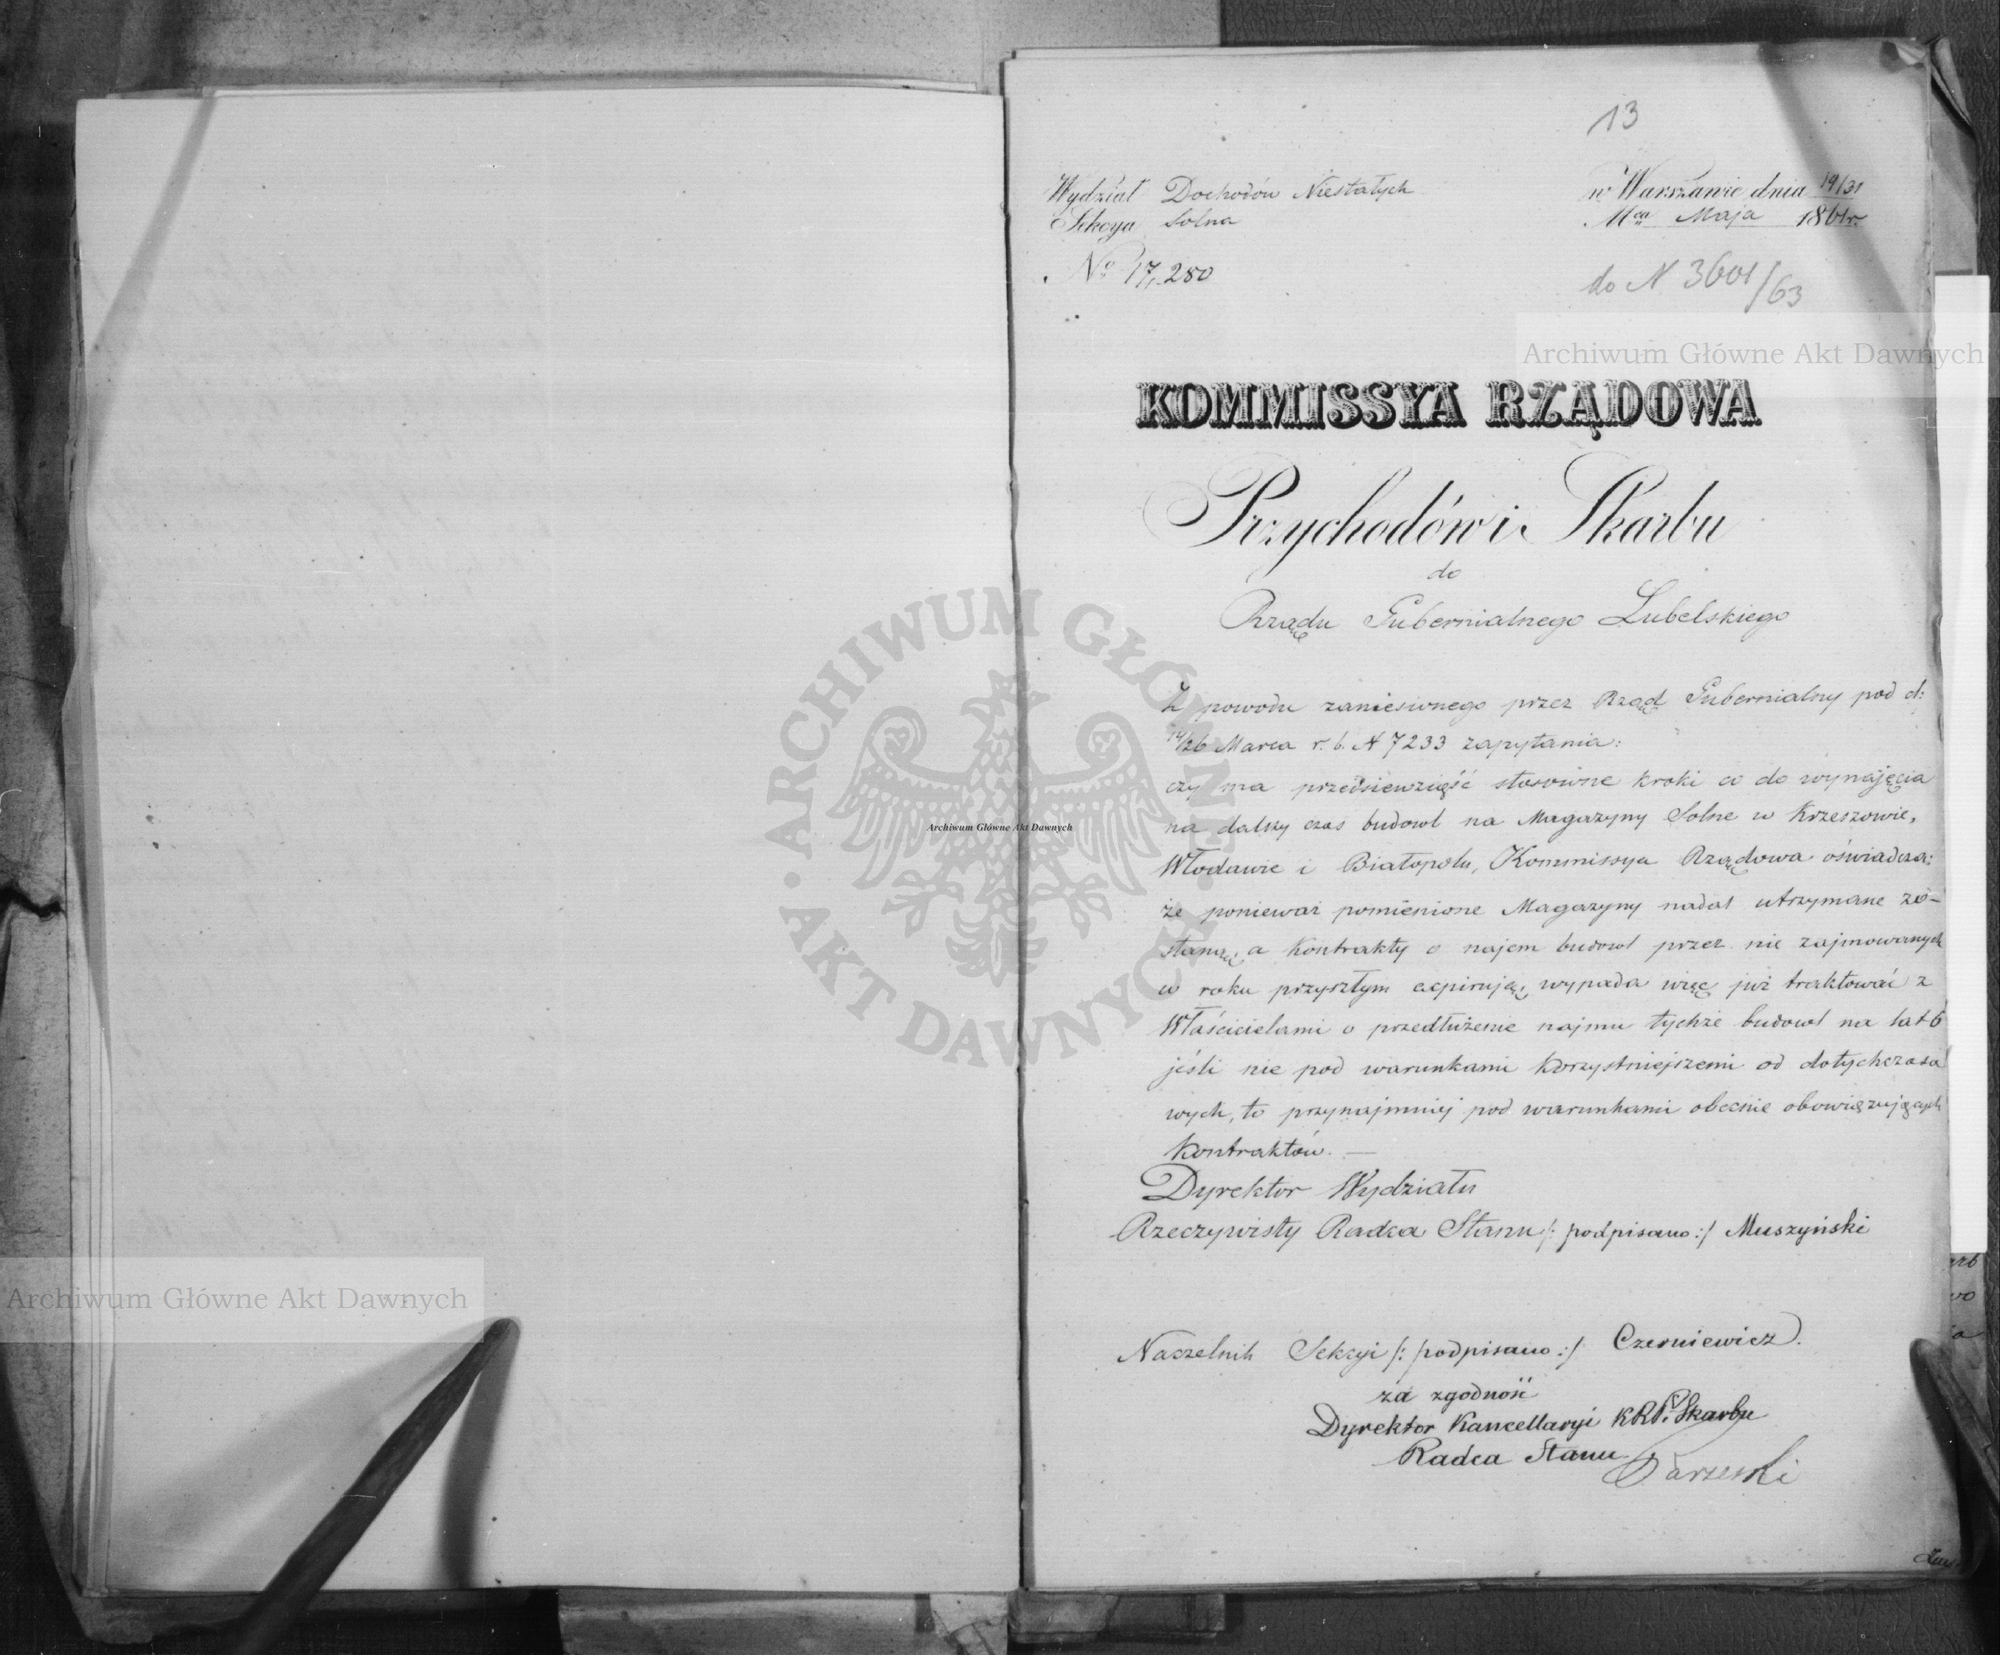 13
Wydział Dochodów Niestałych
Sekcya Solna
w Warszawie dnia 19/31
Mca Maja 1861r.
No 17,280
do N 3601/63
Archiwum Główne Akt Dawnych
KOMMISSYA RZĄDOWA
Przychodów i Skarbu
do
Rządu Gubernialnego Lubelskiego
Z powodu zaniesionego przez Rząd Gubernialny pod d:
14/26 Marca r. b. N 7233 zapytania:
czy ma przedsiewziąść stosowne kroki co do wynajęcia
na dalszy czas budowl na Magazyny Solne w Krzeszowie,
Włodawie i Białopolu, Kommissya Rządowa oświadcza:
że ponieważ pomienione Magazyny nadal utrzymane zo-
staną, a Kontrakty o najem budowl przez nie zajmowanych
w roku przyszłym expirują, wypada więc już traktować z
Właścicielami o przedłużenie najmu tychże budowl na lat 6
jeśli nie pod warunkami korzystniejszemi od dotychczaso
wych, to przynajmniej pod warunkami obecnie obowiązujących
Kontraktów. —
Dyrektor Wydziału
Rzeczywisty Radca Stanu /: podpisano :/ Muszyński
Naczelnik Sekcyi /: podpisano :/ Czerniewicz.
za zgodność
Dyrektor Kancellaryi KRP. i Skarbu
Radca Stanu
ARCHIWUM GŁÓWNE · AKT DAWNYCH ·
Archiwum Główne Akt Dawnych
Archiwum Główne Akt Dawnych